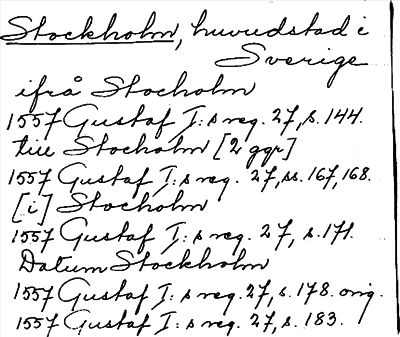 Stockholm, huvudstad i
Sverige
ifrå Stocholm
1557 Gustaf I:s reg. 27, s. 144.
till Stocholm [2 ggr]
1557 Gustaf I:s reg. 27, ss. 167, 168.
[i] Stocholm
1557 Gustaf I:s reg. 27, s. 171.
Datum Stockholm
1557 Gustaf I:s reg. 27, s. 178. orig.
1557 Gustaf I:s reg. 27, s. 183.